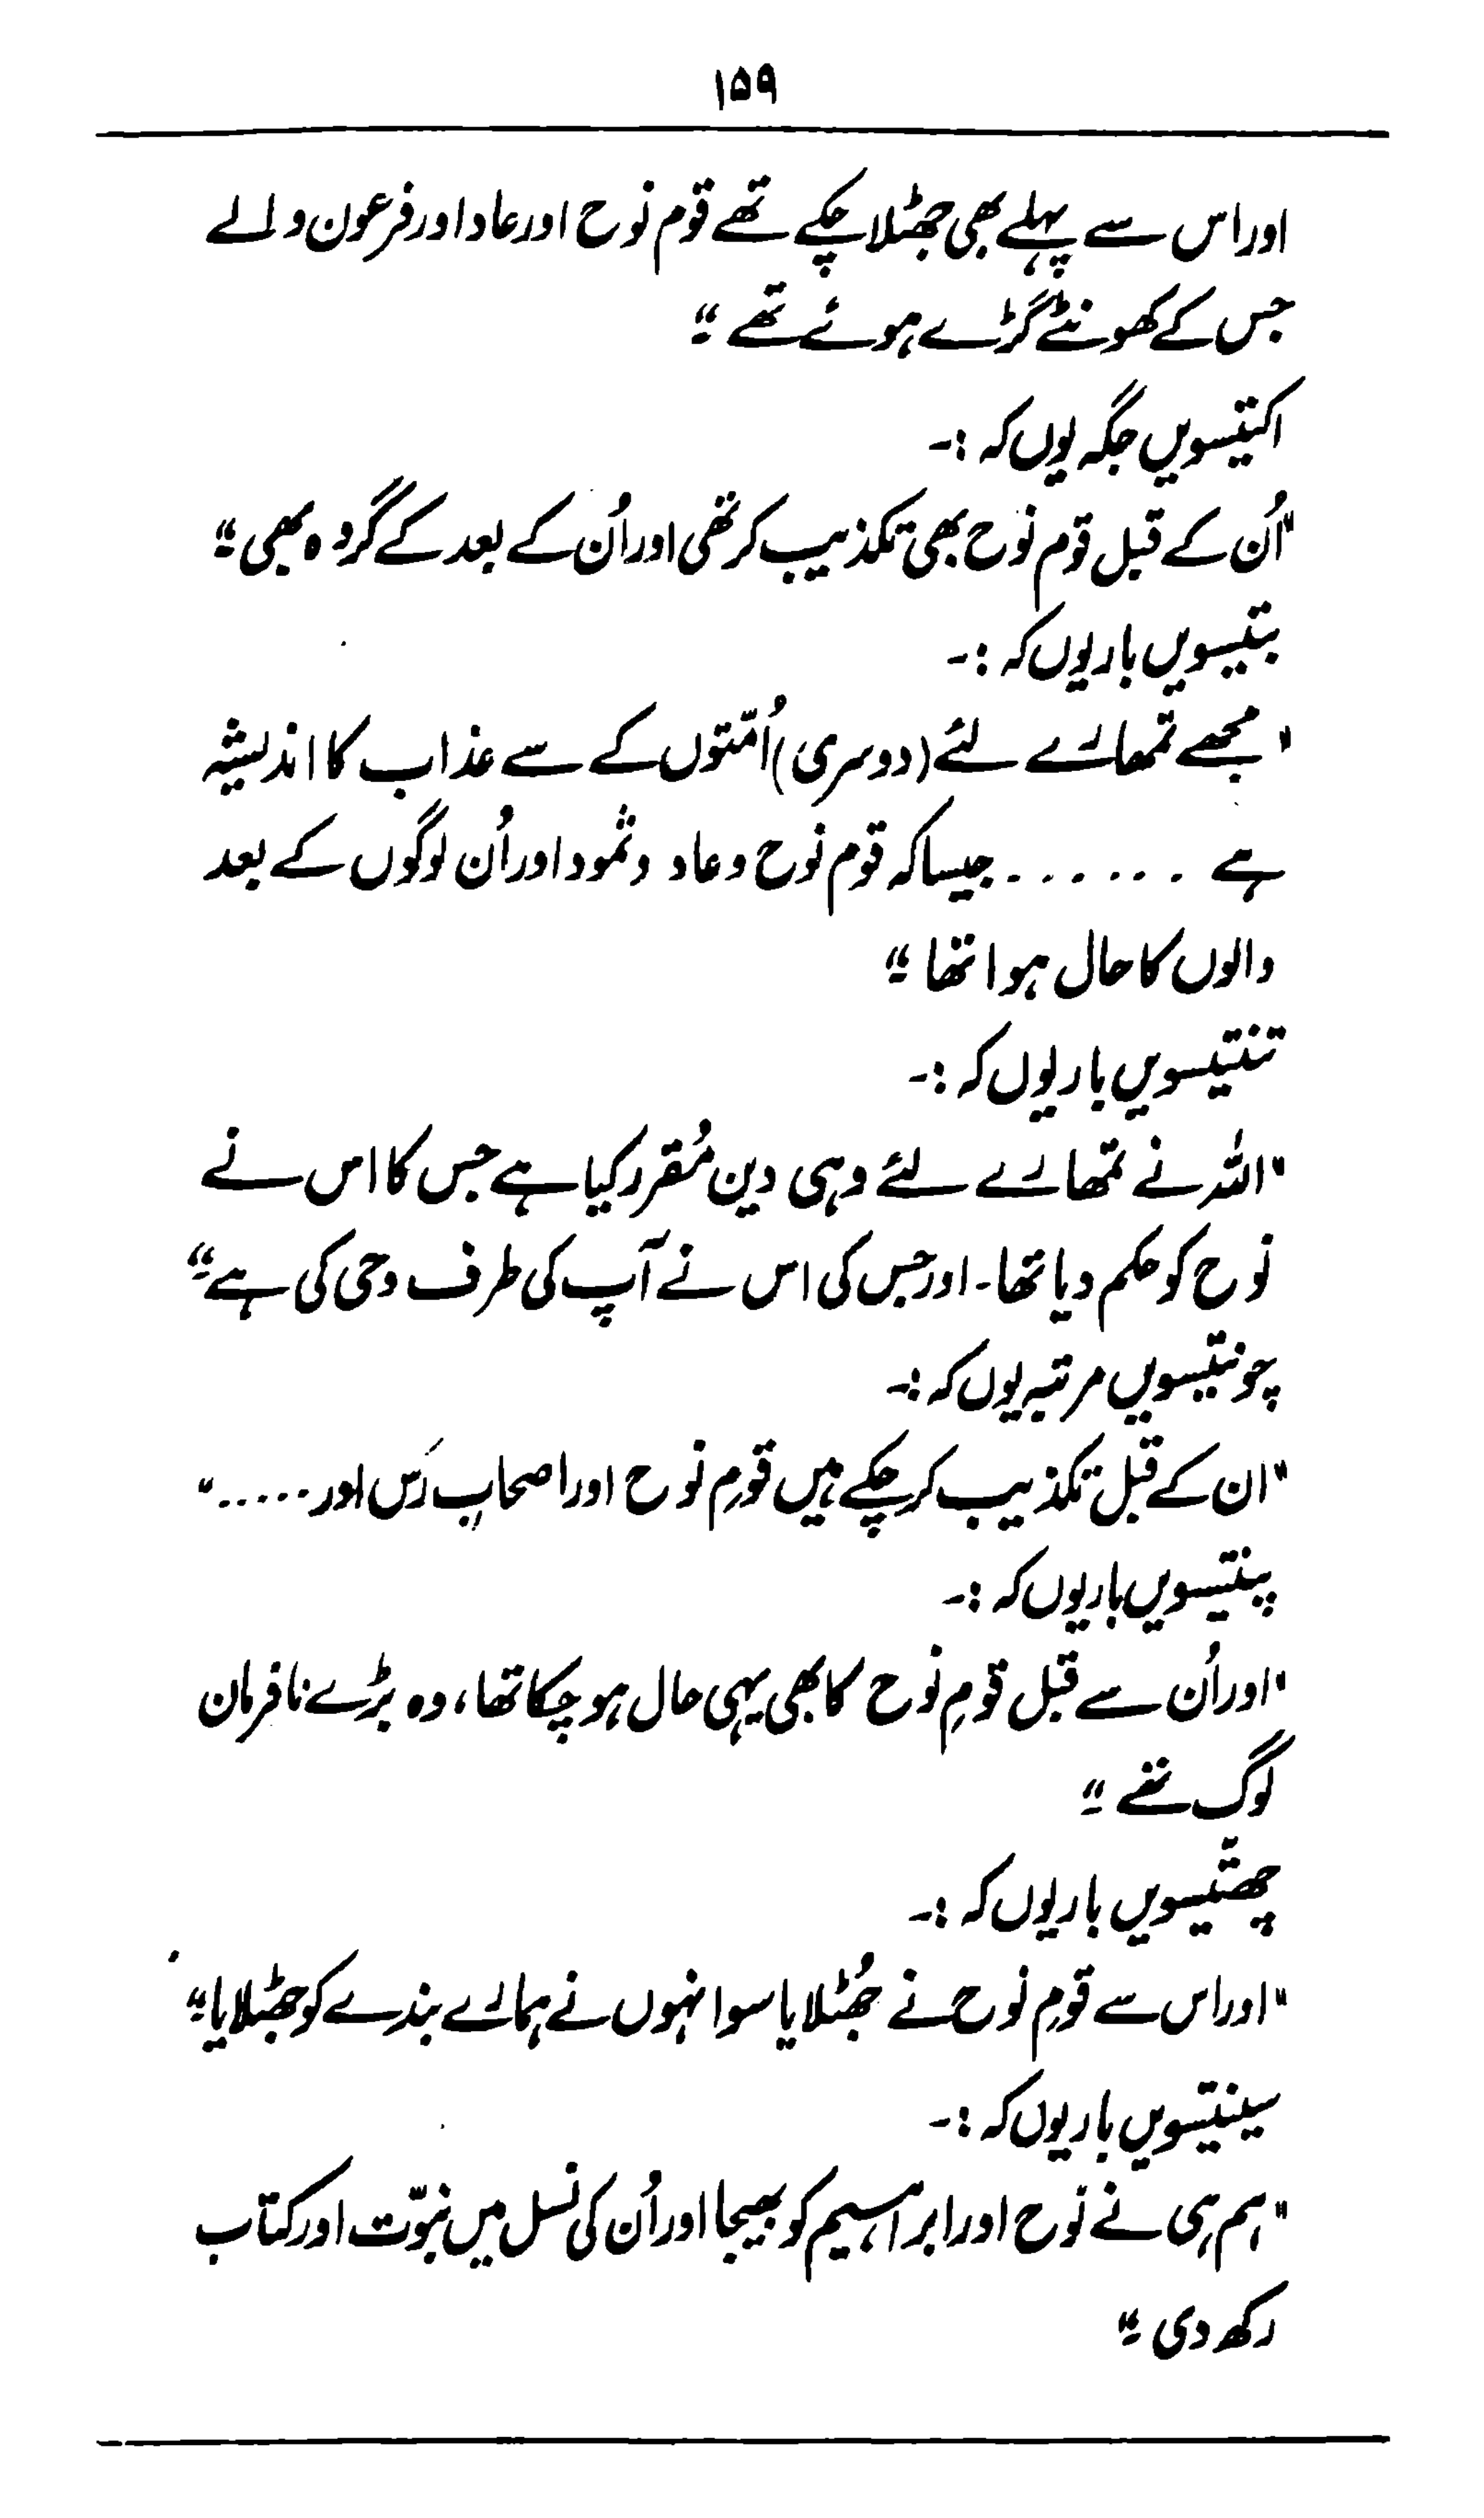 ۱۵۹
اور اس سے پہلے بھی جھٹلا چکے تھے قوم نوح اور عاد اور فرعون والے
جس کے کھونٹے گڑے ہوئے تھے"
اکتیسویں جگہ یوں کہ :-
"اُن کے قبل قوم نوح بھی تکذیب کر تھی اور اُن کے بعد کے گروہ بھی"
بتیسویں بار یوں کہ :-
"مجھے تمھارے لئے (دوسری) اُمتّوں کے سے عذاب کا اندیشہ
ہے ....... جیسا کہ قوم نُوح و عاد و ثمود اور اُن لوگوں کے بعد
والوں کا حال ہوا تھا"
تنتیسویں بار یوں کہ :-
"اللہ نے تمھارے لئے وہی دین مُقرر کیا ہے جس کا اس نے
نوح کو حکم دیا تھا۔ اور جس کی اس نے آپ کی طرف وحی کی ہے"
چونتیسویں مرتبہ یوں کہ :-
"ان کے قبل تکذیب کر چکے ہیں قومِ نوح اور اصحابِ رَس اور....."
پینتیسویں بار یوں کہ :-
"اور اُن سے قبل قومِ نُوح کا بھی یہی حال ہو چکا تھا، وہ بڑے نافرمان
لوگ تھے"
چھتیسویں بار یوں کہ :-
"اور اس سے قومِ نوح نے جھُٹلایا سو انہوں نے ہمارے بندے کو جھٹلایا"
سینتیسویں بار یوں کہ :-
"ہم ہی نے نُوح اور ابراہیم کو بھیجا اور اُن کی نسل میں نبوّت اور کتاب
رکھ دی"